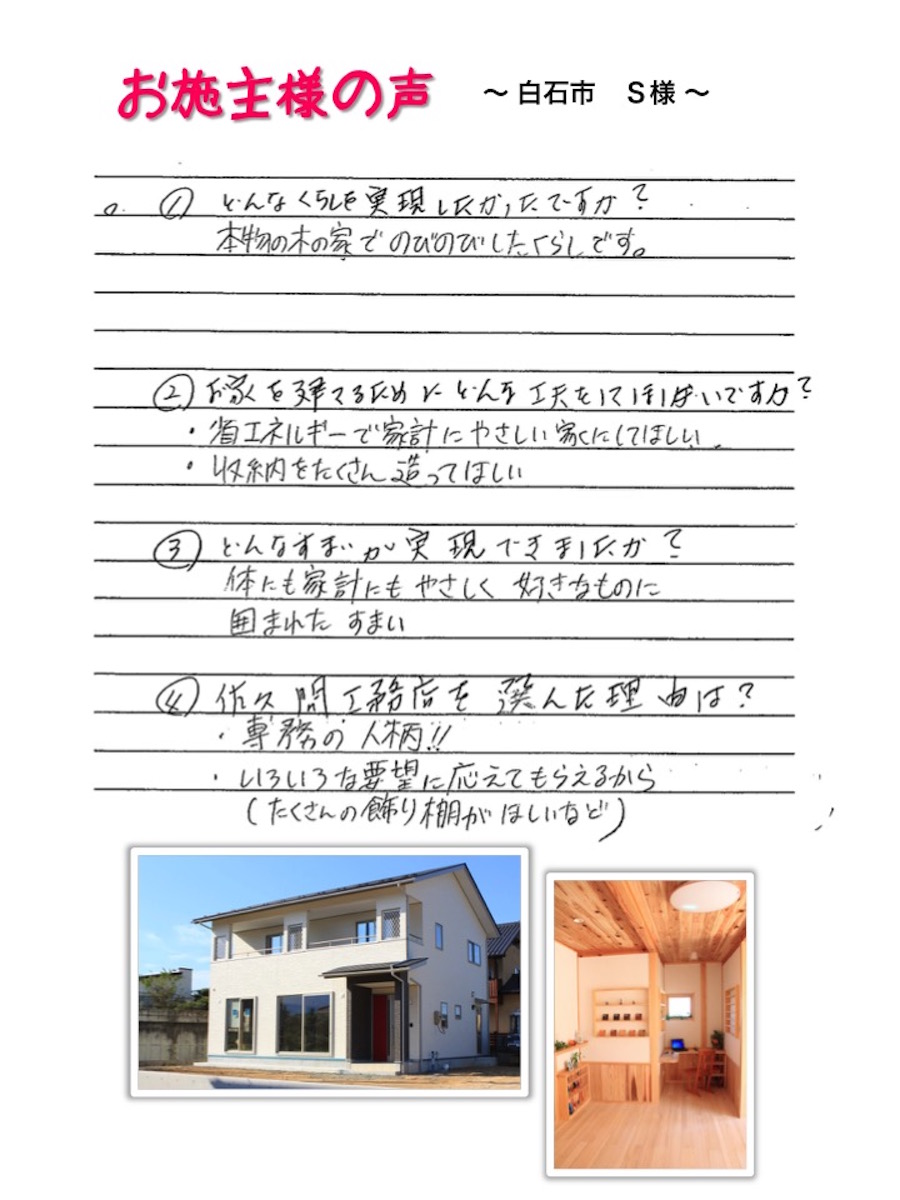 お施主様の声　～ 白石市　S様 ～
① どんなくらしを実現したかったですか？
本物の木の家でのびのびしたくらしです。
② お家を建てるためにどんな工夫をしてほしいですか？
・省エネルギーで家計にやさしい家にしてほしい
・収納をたくさん造ってほしい
③ どんなすまいが実現できましたか？
体にも家計にもやさしく 好きなものに
囲まれた すまい
④ 佐久間工務店を選んだ理由は？
・専務の人柄!!
・いろいろな要望に応えてもらえるから
(たくさんの飾り棚がほしいなど)